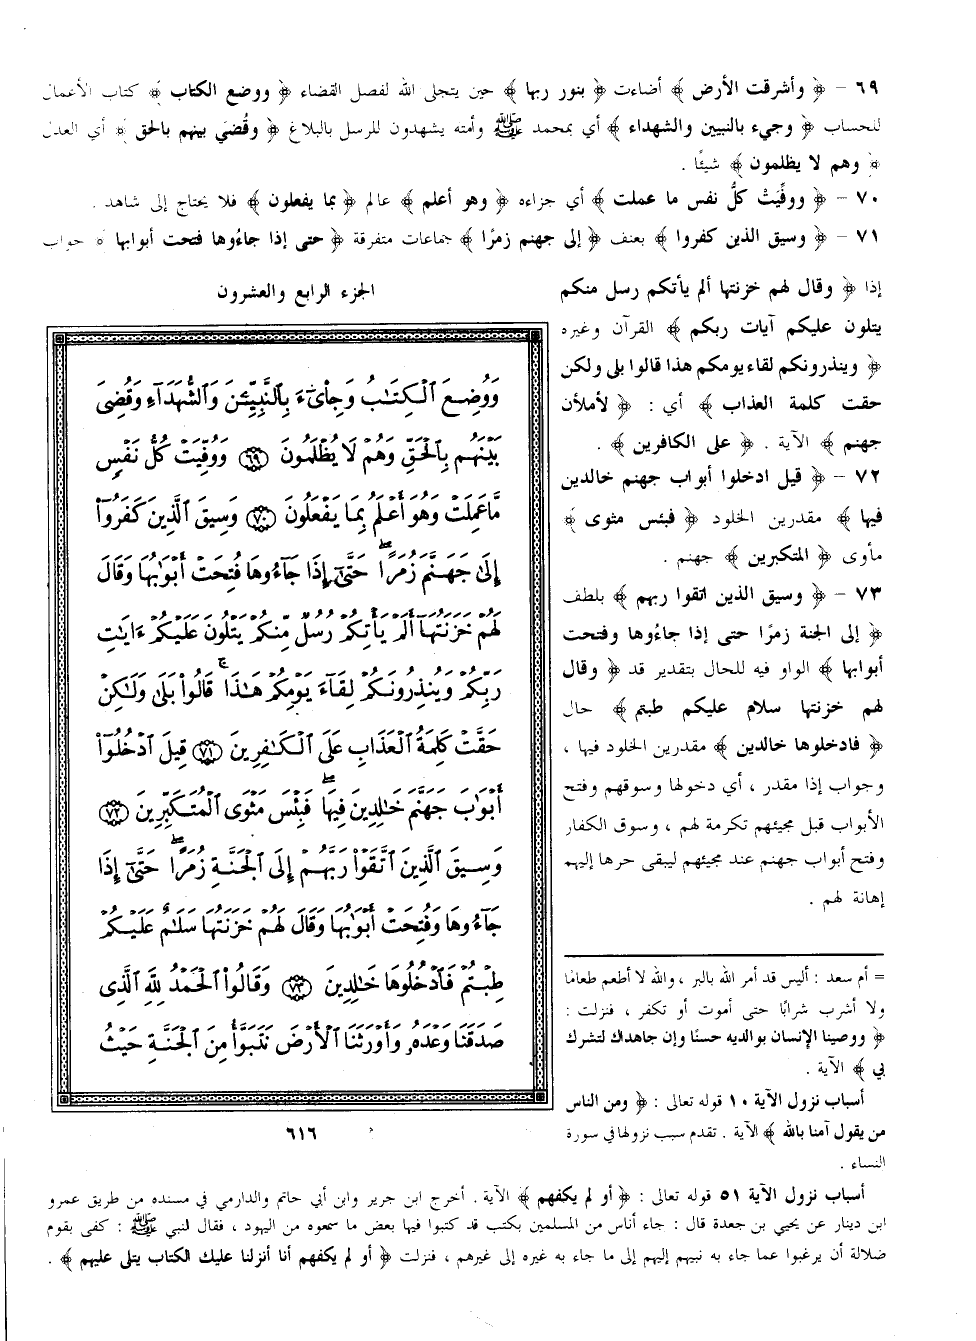 ٦٩ - ﴿ وأشرقت الأرض ﴾ أضاءت ﴿ بنور ربها ﴾ حين يتجلى الله لفصل القضاء ﴿ ووضع الكتاب ﴾ كتاب الأعمال
للحساب ﴿ وجيء بالنبيين والشهداء ﴾ أي بمحمد ﷺ وأمته يشهدون للرسل بالبلاغ ﴿ وقُضيَ بينهم بالحق ﴾ أي العدل
﴿ وهم لا يظلمون ﴾ شيئًا .
٧٠ - ﴿ ووفِّيَتْ كلُّ نفس ما عملت ﴾ أي جزاءه ﴿ وهو أعلم ﴾ عالم ﴿ بما يفعلون ﴾ فلا يحتاج إلى شاهد .
٧١ - ﴿ وسيق الذين كفروا ﴾ بعنف ﴿ إلى جهنم زمرًا ﴾ جماعات متفرقة ﴿ حتى إذا جاءُوها فتحت أبوابها ﴾ جواب
إذا ﴿ وقال لهم خزنتها ألم يأتكم رسل منكم
يتلون عليكم آيات ربكم ﴾ القرآن وغيره
﴿ وينذرونكم لقاء يومكم هذا قالوا بلى ولكن
حقت كلمة العذاب ﴾ أي : ﴿ لأملأن
جهنم ﴾ الآية . ﴿ على الكافرين ﴾ .
٧٢ - ﴿ قيل ادخلوا أبواب جهنم خالدين
فيها ﴾ مقدرين الخلود ﴿ فبئس مثوى ﴾
مأوى ﴿ المتكبرين ﴾ جهنم .
٧٣ - ﴿ وسيق الذين اتقوا ربهم ﴾ بلطف
﴿ إلى الجنة زمرًا حتى إذا جاءُوها وفتحت
أبوابها ﴾ الواو فيه للحال بتقدير قد ﴿ وقال
لهم خزنتها سلام عليكم طبتم ﴾ حال
﴿ فادخلوها خالدين ﴾ مقدرين الخلود فيها ،
وجواب إذا مقدر ، أي دخولها وسوقهم وفتح
الأبواب قبل مجيئهم تكرمة لهم ، وسوق الكفار
وفتح أبواب جهنم عند مجيئهم ليبقى حرها إليهم
إهانة لهم .
الجزء الرابع والعشرون
وَوُضِعَ ٱلْكِتَٰبُ وَجِاْىٓءَ بِٱلنَّبِيِّـۧنَ وَٱلشُّهَدَآءِ وَقُضِىَ
بَيْنَهُم بِٱلْحَقِّ وَهُمْ لَا يُظْلَمُونَ ٦٩ وَوُفِّيَتْ كُلُّ نَفْسٍ
مَّا عَمِلَتْ وَهُوَ أَعْلَمُ بِمَا يَفْعَلُونَ ٧٠ وَسِيقَ ٱلَّذِينَ كَفَرُوٓا۟
إِلَىٰ جَهَنَّمَ زُمَرًا ۖ حَتَّىٰٓ إِذَا جَآءُوهَا فُتِحَتْ أَبْوَٰبُهَا وَقَالَ
لَهُمْ خَزَنَتُهَآ أَلَمْ يَأْتِكُمْ رُسُلٌ مِّنكُمْ يَتْلُونَ عَلَيْكُمْ ءَايَٰتِ
رَبِّكُمْ وَيُنذِرُونَكُمْ لِقَآءَ يَوْمِكُمْ هَٰذَا ۚ قَالُوا۟ بَلَىٰ وَلَٰكِنْ
حَقَّتْ كَلِمَةُ ٱلْعَذَابِ عَلَى ٱلْكَٰفِرِينَ ٧١ قِيلَ ٱدْخُلُوٓا۟
أَبْوَٰبَ جَهَنَّمَ خَٰلِدِينَ فِيهَا ۖ فَبِئْسَ مَثْوَى ٱلْمُتَكَبِّرِينَ ٧٢
وَسِيقَ ٱلَّذِينَ ٱتَّقَوْا۟ رَبَّهُمْ إِلَى ٱلْجَنَّةِ زُمَرًا ۖ حَتَّىٰٓ إِذَا
جَآءُوهَا وَفُتِحَتْ أَبْوَٰبُهَا وَقَالَ لَهُمْ خَزَنَتُهَا سَلَٰمٌ عَلَيْكُمْ
طِبْتُمْ فَٱدْخُلُوهَا خَٰلِدِينَ ٧٣ وَقَالُوا۟ ٱلْحَمْدُ لِلَّهِ ٱلَّذِى
صَدَقَنَا وَعْدَهُۥ وَأَوْرَثَنَا ٱلْأَرْضَ نَتَبَوَّأُ مِنَ ٱلْجَنَّةِ حَيْثُ
٦١٦
= أم سعد : أليس قد أمر الله بالبر ، والله لا أطعم طعامًا
ولا أشرب شرابًا حتى أموت أو تكفر ، فنزلت :
﴿ ووصينا الإنسان بوالديه حسنًا وإن جاهداك لتشرك
بي ﴾ الآية .
أسباب نزول الآية ١٠ قوله تعالى : ﴿ ومن الناس
من يقول آمنا بالله ﴾ الآية . تقدم سبب نزولها في سورة
النساء .
أسباب نزول الآية ٥١ قوله تعالى : ﴿ أو لم يكفهم ﴾ الآية . أخرج ابن جرير وابن أبي حاتم والدارمي في مسنده من طريق عمرو
ابن دينار عن يحيى بن جعدة قال : جاء أناس من المسلمين بكتب قد كتبوا فيها بعض ما سمعوه من اليهود ، فقال النبي ﷺ : كفى بقوم
ضلالة أن يرغبوا عما جاء به نبيهم إليهم إلى ما جاء به غيره إلى غيرهم ، فنزلت ﴿ أو لم يكفهم أنا أنزلنا عليك الكتاب يتلى عليهم ﴾ .